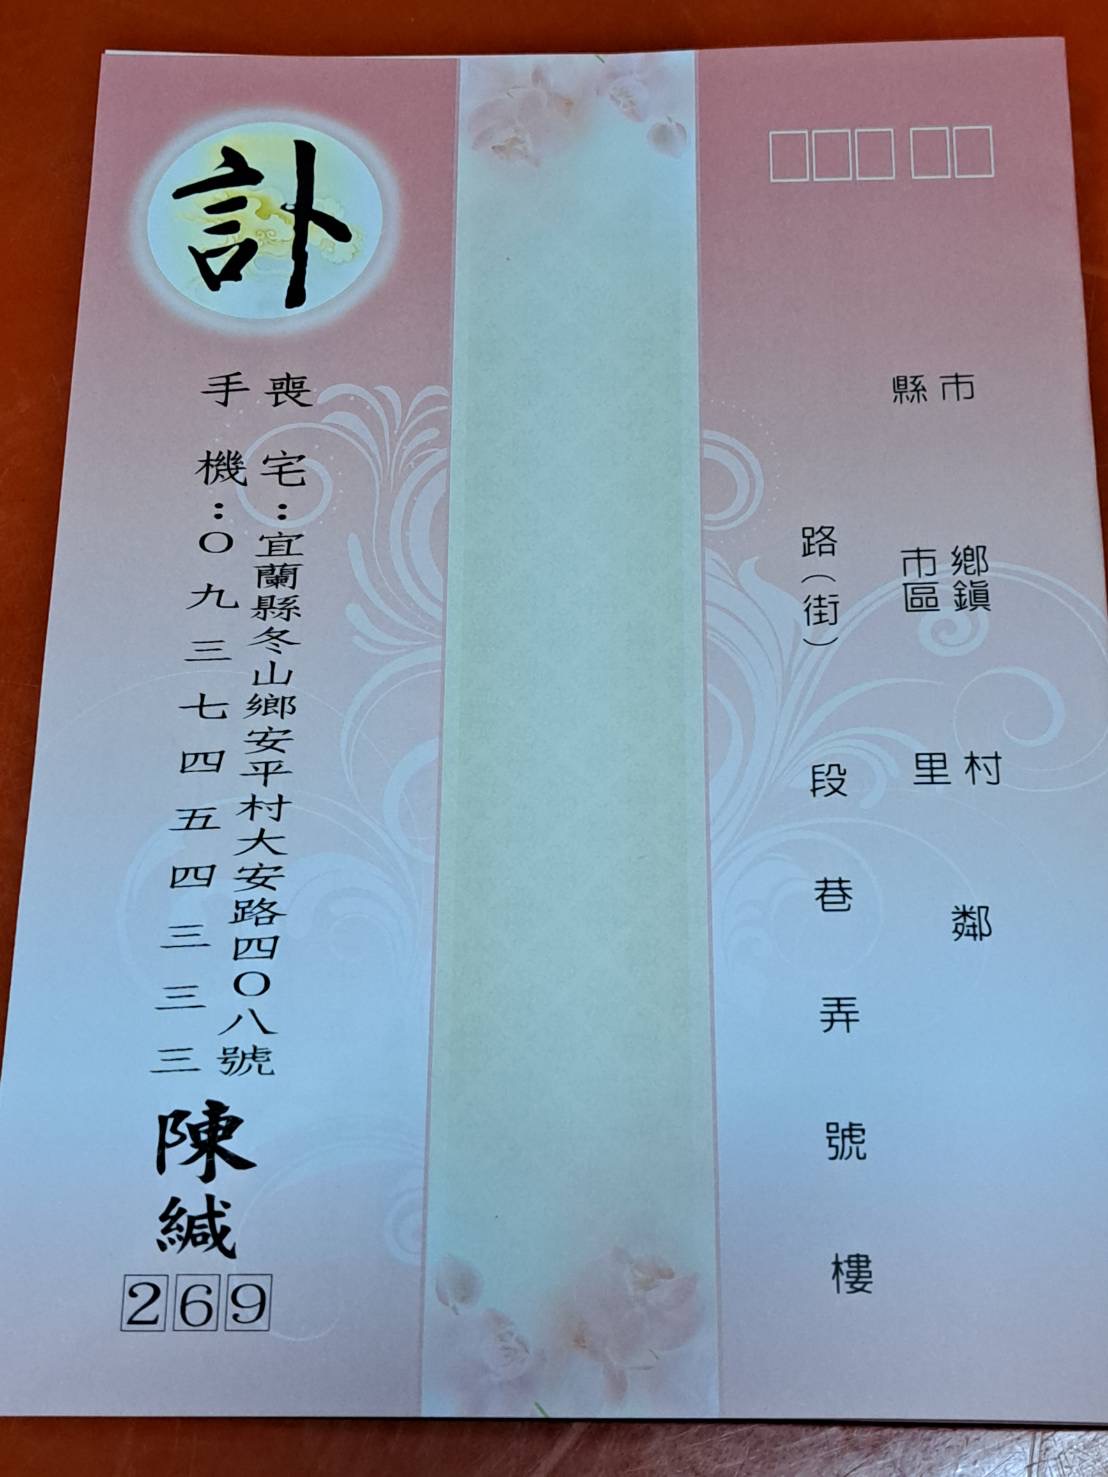 縣市
鄉鎮
市區
村
里
鄰
路(街)
段
巷
弄
號
樓
訃
喪宅：宜蘭縣冬山鄉安平村大安路四〇八號
手機：〇九三七四五四三三三
陳緘
269